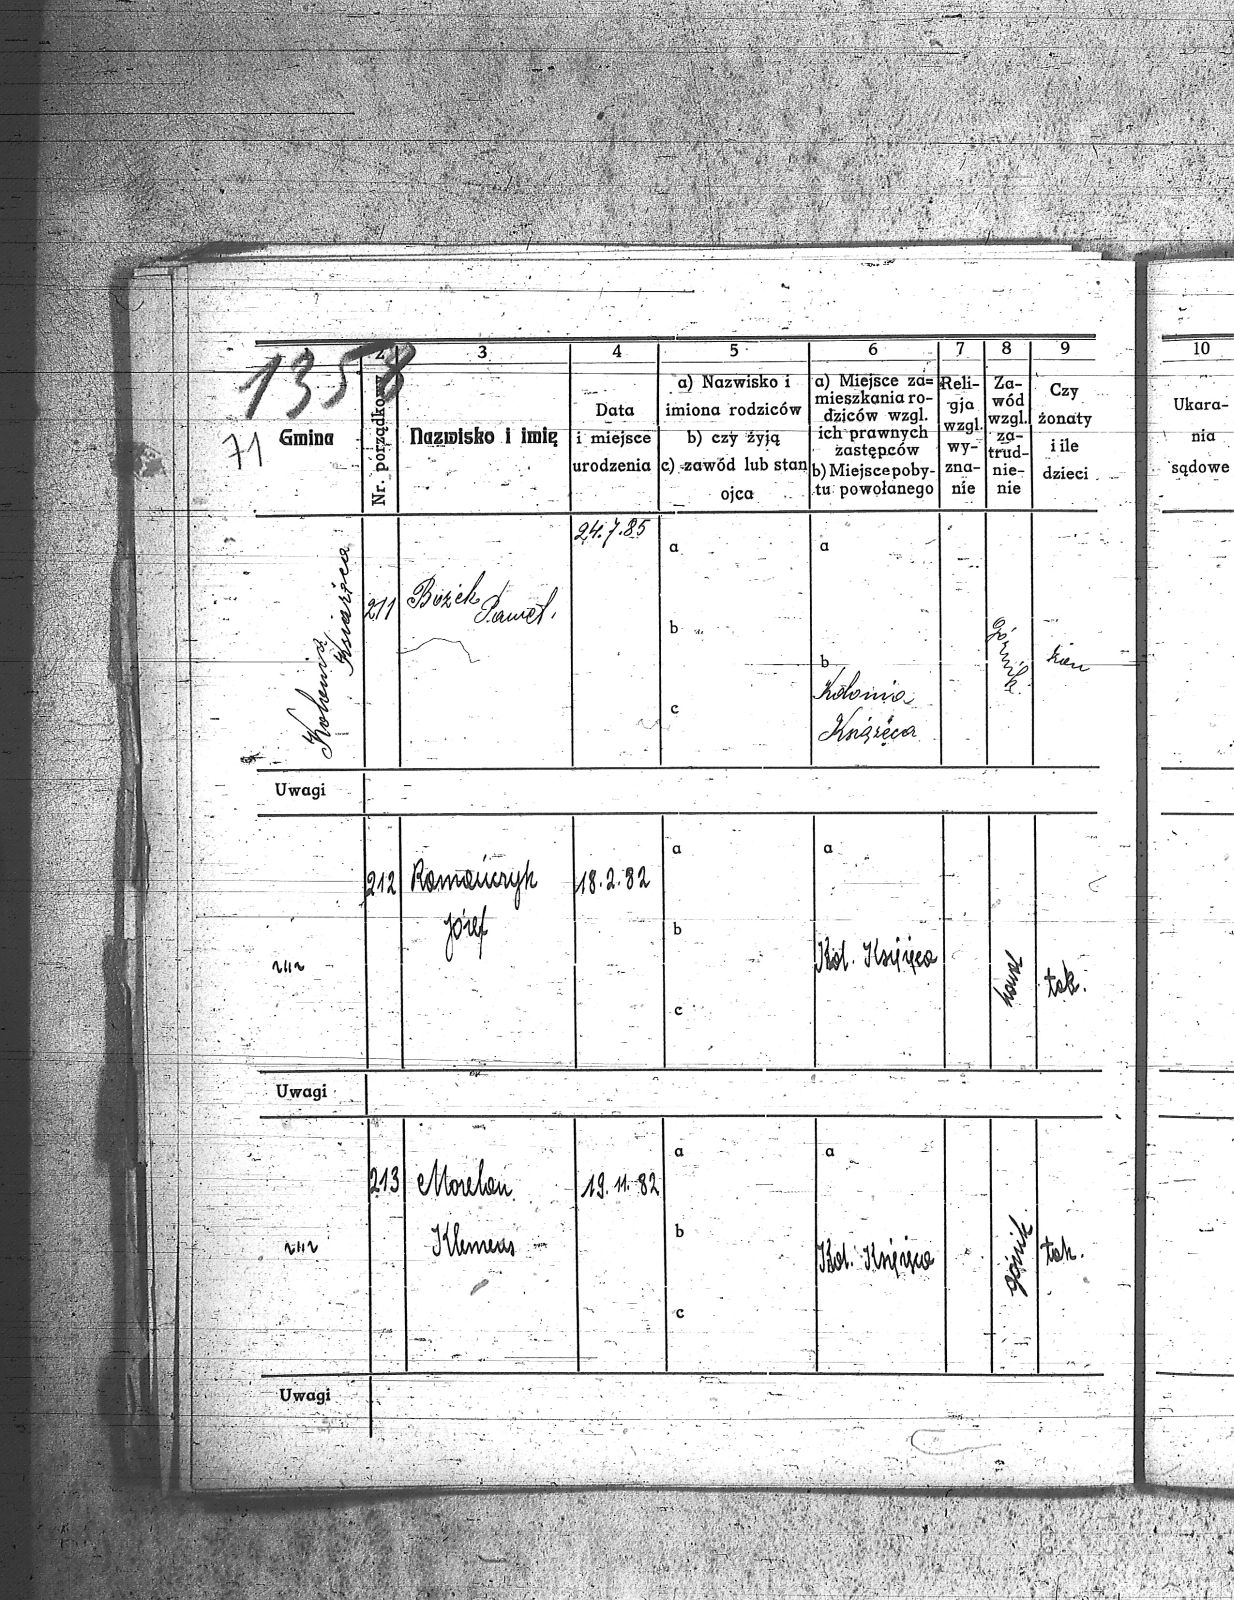 1358
71
2 3 4 5 6 7 8 9 10
Gmina
Nr. porządkowy
Nazwisko i imię
Data
i miejsce
urodzenia
a) Nazwisko i
imiona rodziców
b) czy żyją
c) zawód lub stan
ojca
a) Miejsce za=
mieszkania ro-
dziców wzgl.
ich prawnych
zastępców
b) Miejsce poby-
tu powołanego
Reli-
gja
wzgl.
wy-
zna-
nie
Za-
wód
wzgl.
za-
trud-
nie-
nie
Czy
żonaty
i ile
dzieci
Ukara-
nia
sądowe
Kolonia
Książęca
211
Bożek
Paweł.
24.7.85
a
b
c
a
b
Kolonia
Książęca
górnik
Uwagi
212
Romańczyk
Józef
18.2.82
a
b
c
a
Kol. Księżca
kowal
tak.
Uwagi
213
Morelon
Klemens
19.11.82
a
b
c
a
Kol. Księżca
górnik
tak.
Uwagi